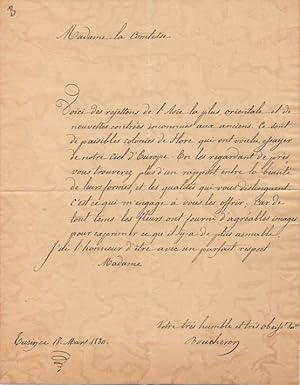 Madame la Comtesse
Voici des rejettons de l'Asie la plus orientale et de
nouvelles contrées inconnues aux anciens. Ce sont
de paisibles colonies de Flore qui ont voulu essayer
de notre Ciel d'Europe. En les regardant de près
vous trouverez plus d'un rapport entre la beauté
de leurs formes et les qualités qui vous distinguent
c'est ce qui m'engage à vous les offrir. Car de
tout tems les fleurs ont fourni d'agréables images
pour exprimer ce qu'il y a de plus aimable
J'ai l'honneur d'être avec un parfait respect
Madame
Votre très humble et très obéiss.
Turin ce 18. Mars 1830.
Boucheron